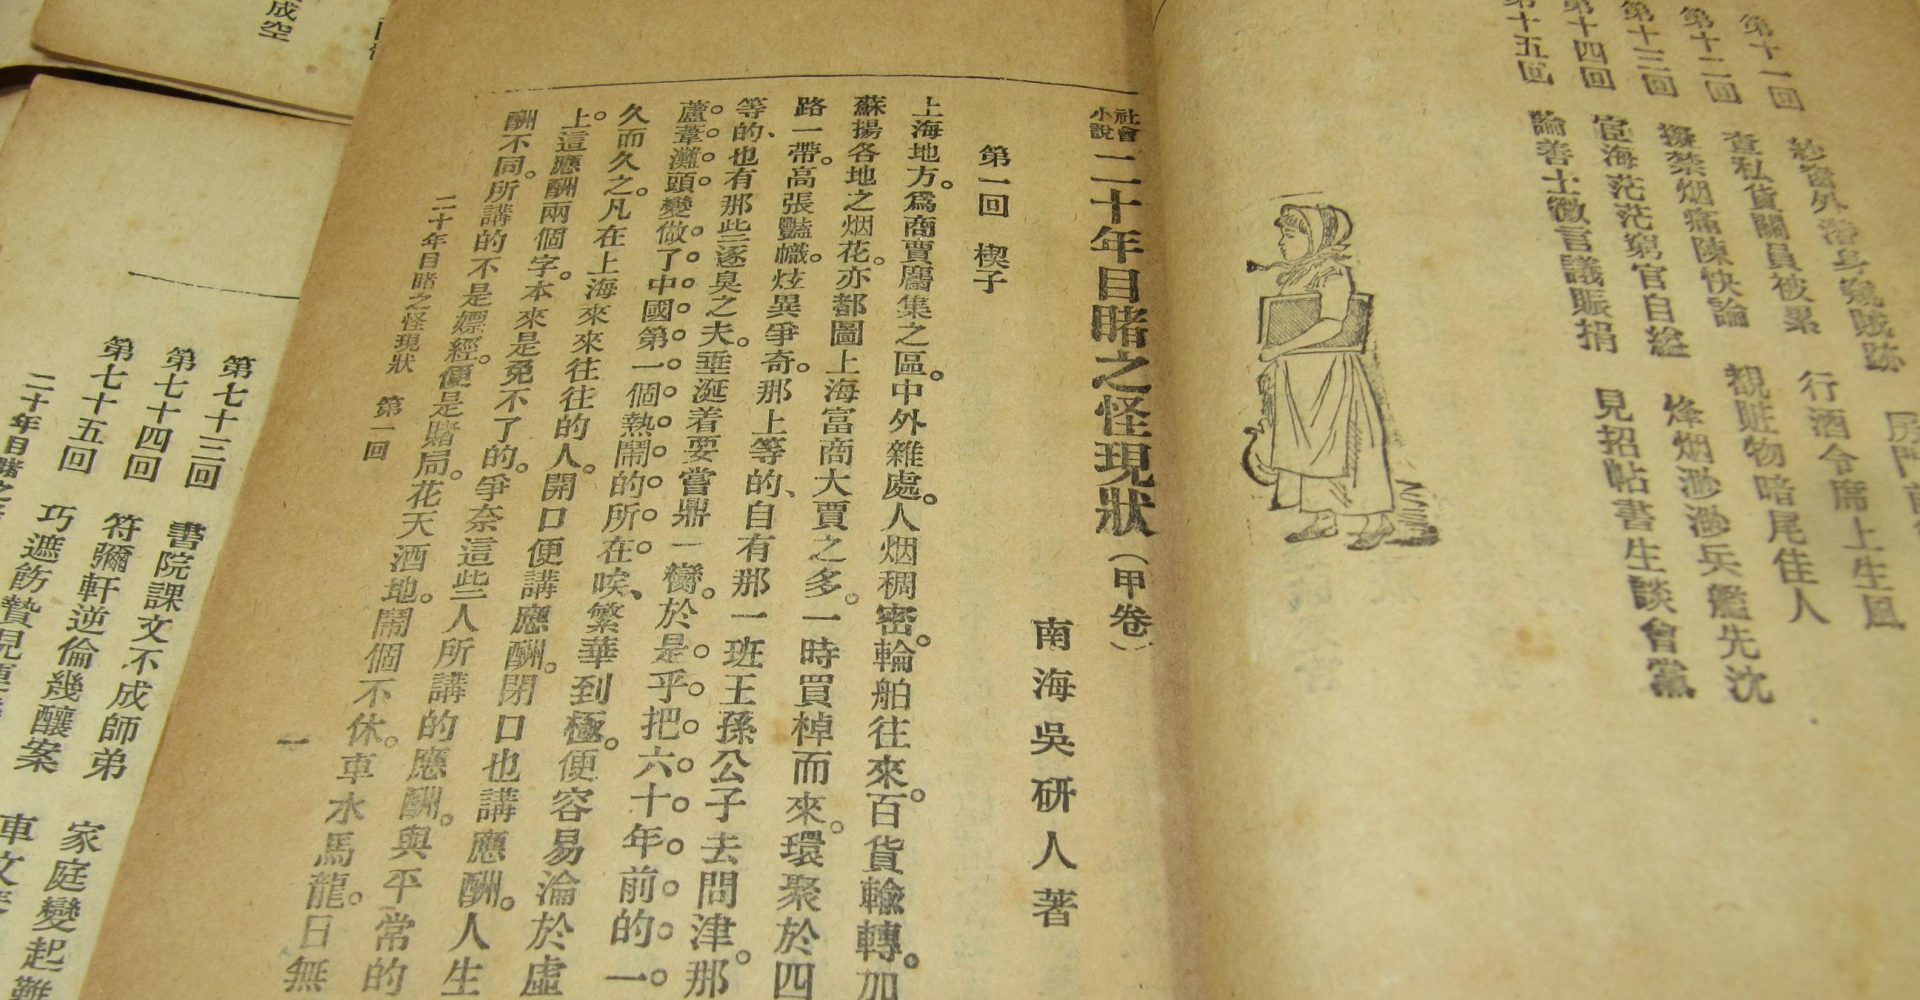 第十一回 紗窗外潛身窺賊跡 房門前
第十二回 查私貨關員被累 行酒令席上生風
第十三回 擬禁烟痛陳快論 覩贓物暗尾佳人
第十四回 宦海茫茫窮官自縊 烽烟渺渺兵艦先沈
第十五回 論善士微言議賑捐 見招帖書生談會黨
社會小說 二十年目睹之怪現狀(甲卷)
南海吳研人著
第一回 楔子
上海地方。爲商賈麕集之區。中外雜處。人烟稠密。輪舶往來。百貨輸轉。加
蘇揚各地之烟花。亦都圖上海富商大賈之多。一時買棹而來。環聚於四
路一帶。高張豔幟。炫異爭奇。那上等的、自有那一班王孫公子去問津。那
等的、也有那些逐臭之夫。垂涎着要嘗鼎一臠。於是乎把六十年前的一
蘆葦灘頭。變做了中國第一個熱鬧的所在。唉、繁華到極。便容易淪於虛
久而久之。凡在上海來來往往的人。開口便講應酬。閉口也講應酬。人生
上。這應酬兩個字。本來是免不了的。爭奈這些人所講的應酬。與平常的
酬不同。所講的不是嫖經。便是賭局。花天酒地。鬧個不休。車水馬龍。日無
二十年目睹之怪現狀 第一回
一
成空
第七十三回 書院課文不成師弟 家庭變起難
第七十四回 符彌軒逆倫幾釀案 車文
第七十五回 巧遮飾贄見
二十年目睹之